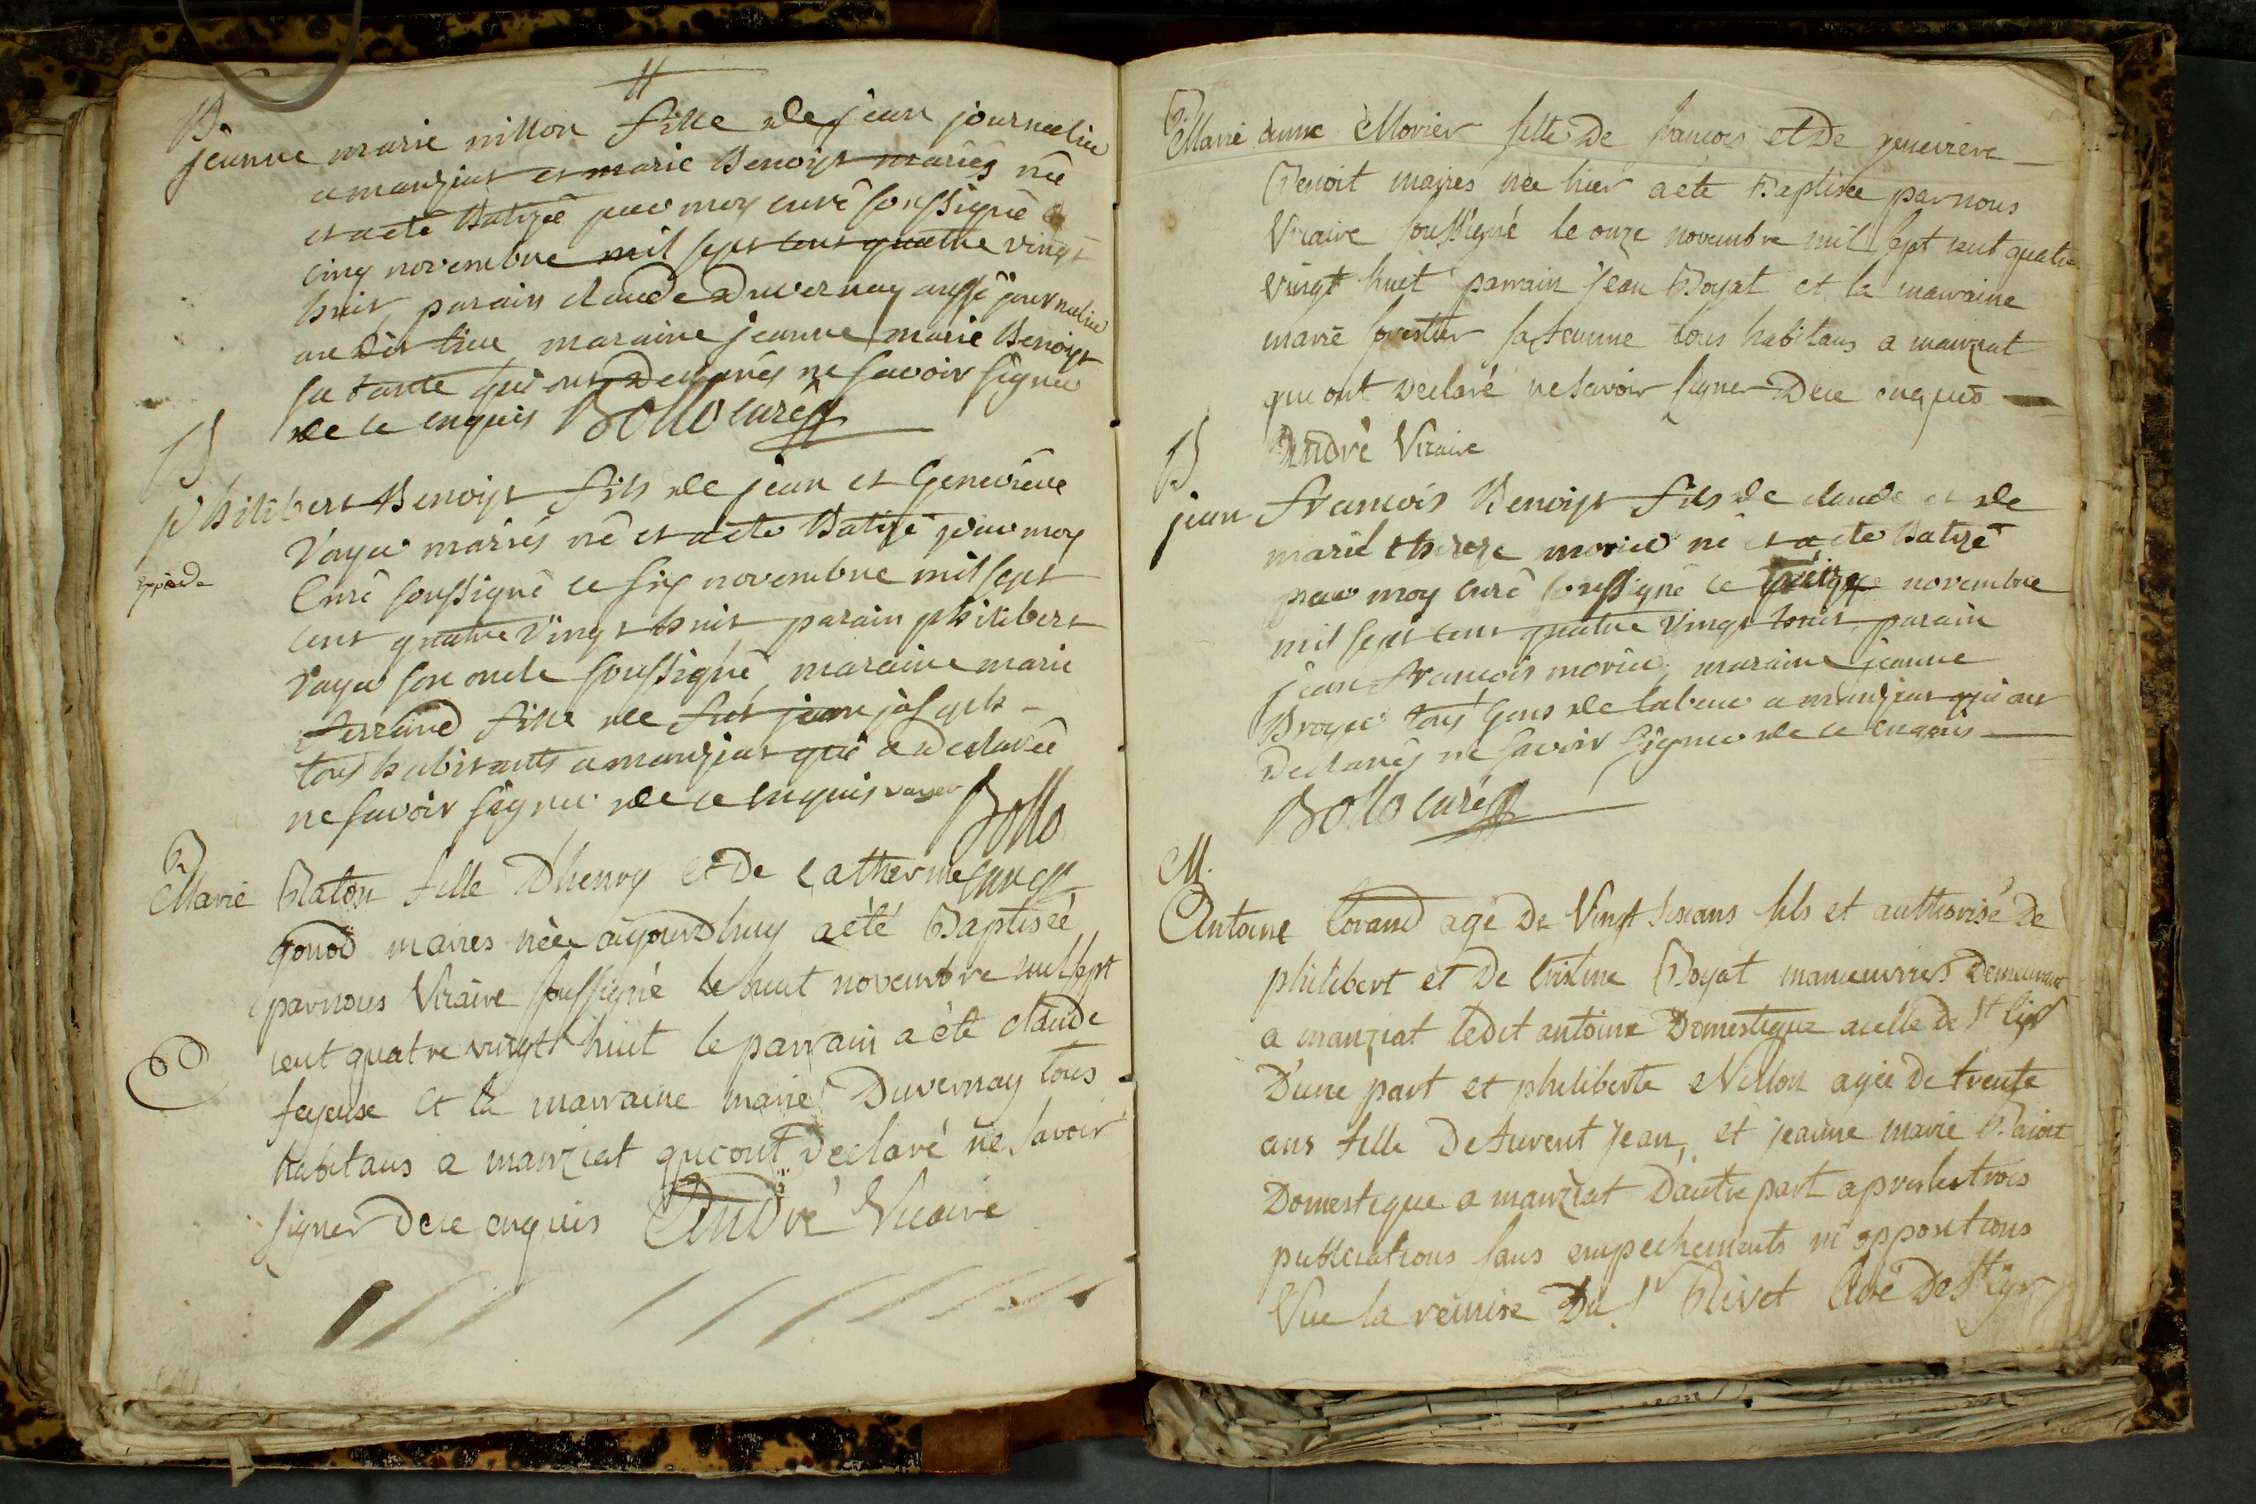 B
jeanne marie nillon fille de jean journalier
a manziat et marie Benoist mariés née
et a eté Batizée par moy curé soussigné le
cinq novembre mil sept cent quatre vingt
huit parain claude Duvernay aussi journalier
au dit lieu maraine jeanne marie Benoist
sa tante qui ont declarés ne savoir signer
de ce enquis Bollo curé
B
philibert Benoist fils de jean et Genevieve
Voyer mariés né et a eté Batizé par moy
expédié
Curé soussigné ce six novembre mil sept
cent quatre vingt huit parain philibert
Voyer son oncle soussigné, maraine marie
fille de fut jean joseph
tous habitants a manziat qui a declarée
ne savoir signer de ce enquis voyer Bollo
B
Marie Raton fille D'henry et De catherine curé
gonod mariés née aujourdhuy a été Baptisée
par nous Vicaire soussigné le huit novembre mil sept
cent quatre vingt huit le parrain a été claude
feyeux et la marraine marie Duvernay tous
habitans a manziat qui ont declaré ne savoir
signer de ce enquis André Vicaire
B
Marie anne Morier fille De francois et De genevieve
Benoit mariés née hier a été Baptisée par nous
Vicaire soussigné le onze novembre mil sept cent quatre
vingt huit parrain jean Boyat et la marraine
marie forestier sa femme tous habitans a manziat
qui ont declaré ne savoir signer De ce enquis
André Vicaire
B
jean francois Benoist fils de claude et de
marie thereze morier né et a eté Batizé
par moy curé soussigné ce treize novembre
mil sept cent quatre vingt huit, parain
jean francois morier, maraine jeanne
Broyer tous Gens de labeur a manziat qui ont
declarés ne savoir signer de ce enquis
Bollo curé
M.
Antoine Lorand agé De Vingt six ans fils et authorisé De
philibert et De Cristine Boyat manœuvriers Demeurant
a manziat ledit antoine Domestique a celle de St Cyr
D'une part et philiberte Nillon agée De trente
ans fille De fuvent jean, et jeanne marie
Domestique a manziat D'autre part apres les trois
publications sans empechements ni oppositions
Vue la remise Du Sr Rivet Curé De St Cyr